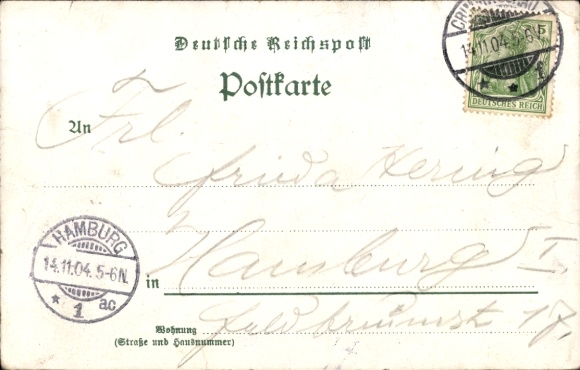 Deutsche Reichspost
Postkarte
14.11.04.5-6N.
5
DEUTSCHES REICH
An Frl.
Frida Hering
HAMBURG
14.11.04.5-6N.
* 1 ac
in Hamburg I.
Wohnung
(Straße und Hausnummer)
17.